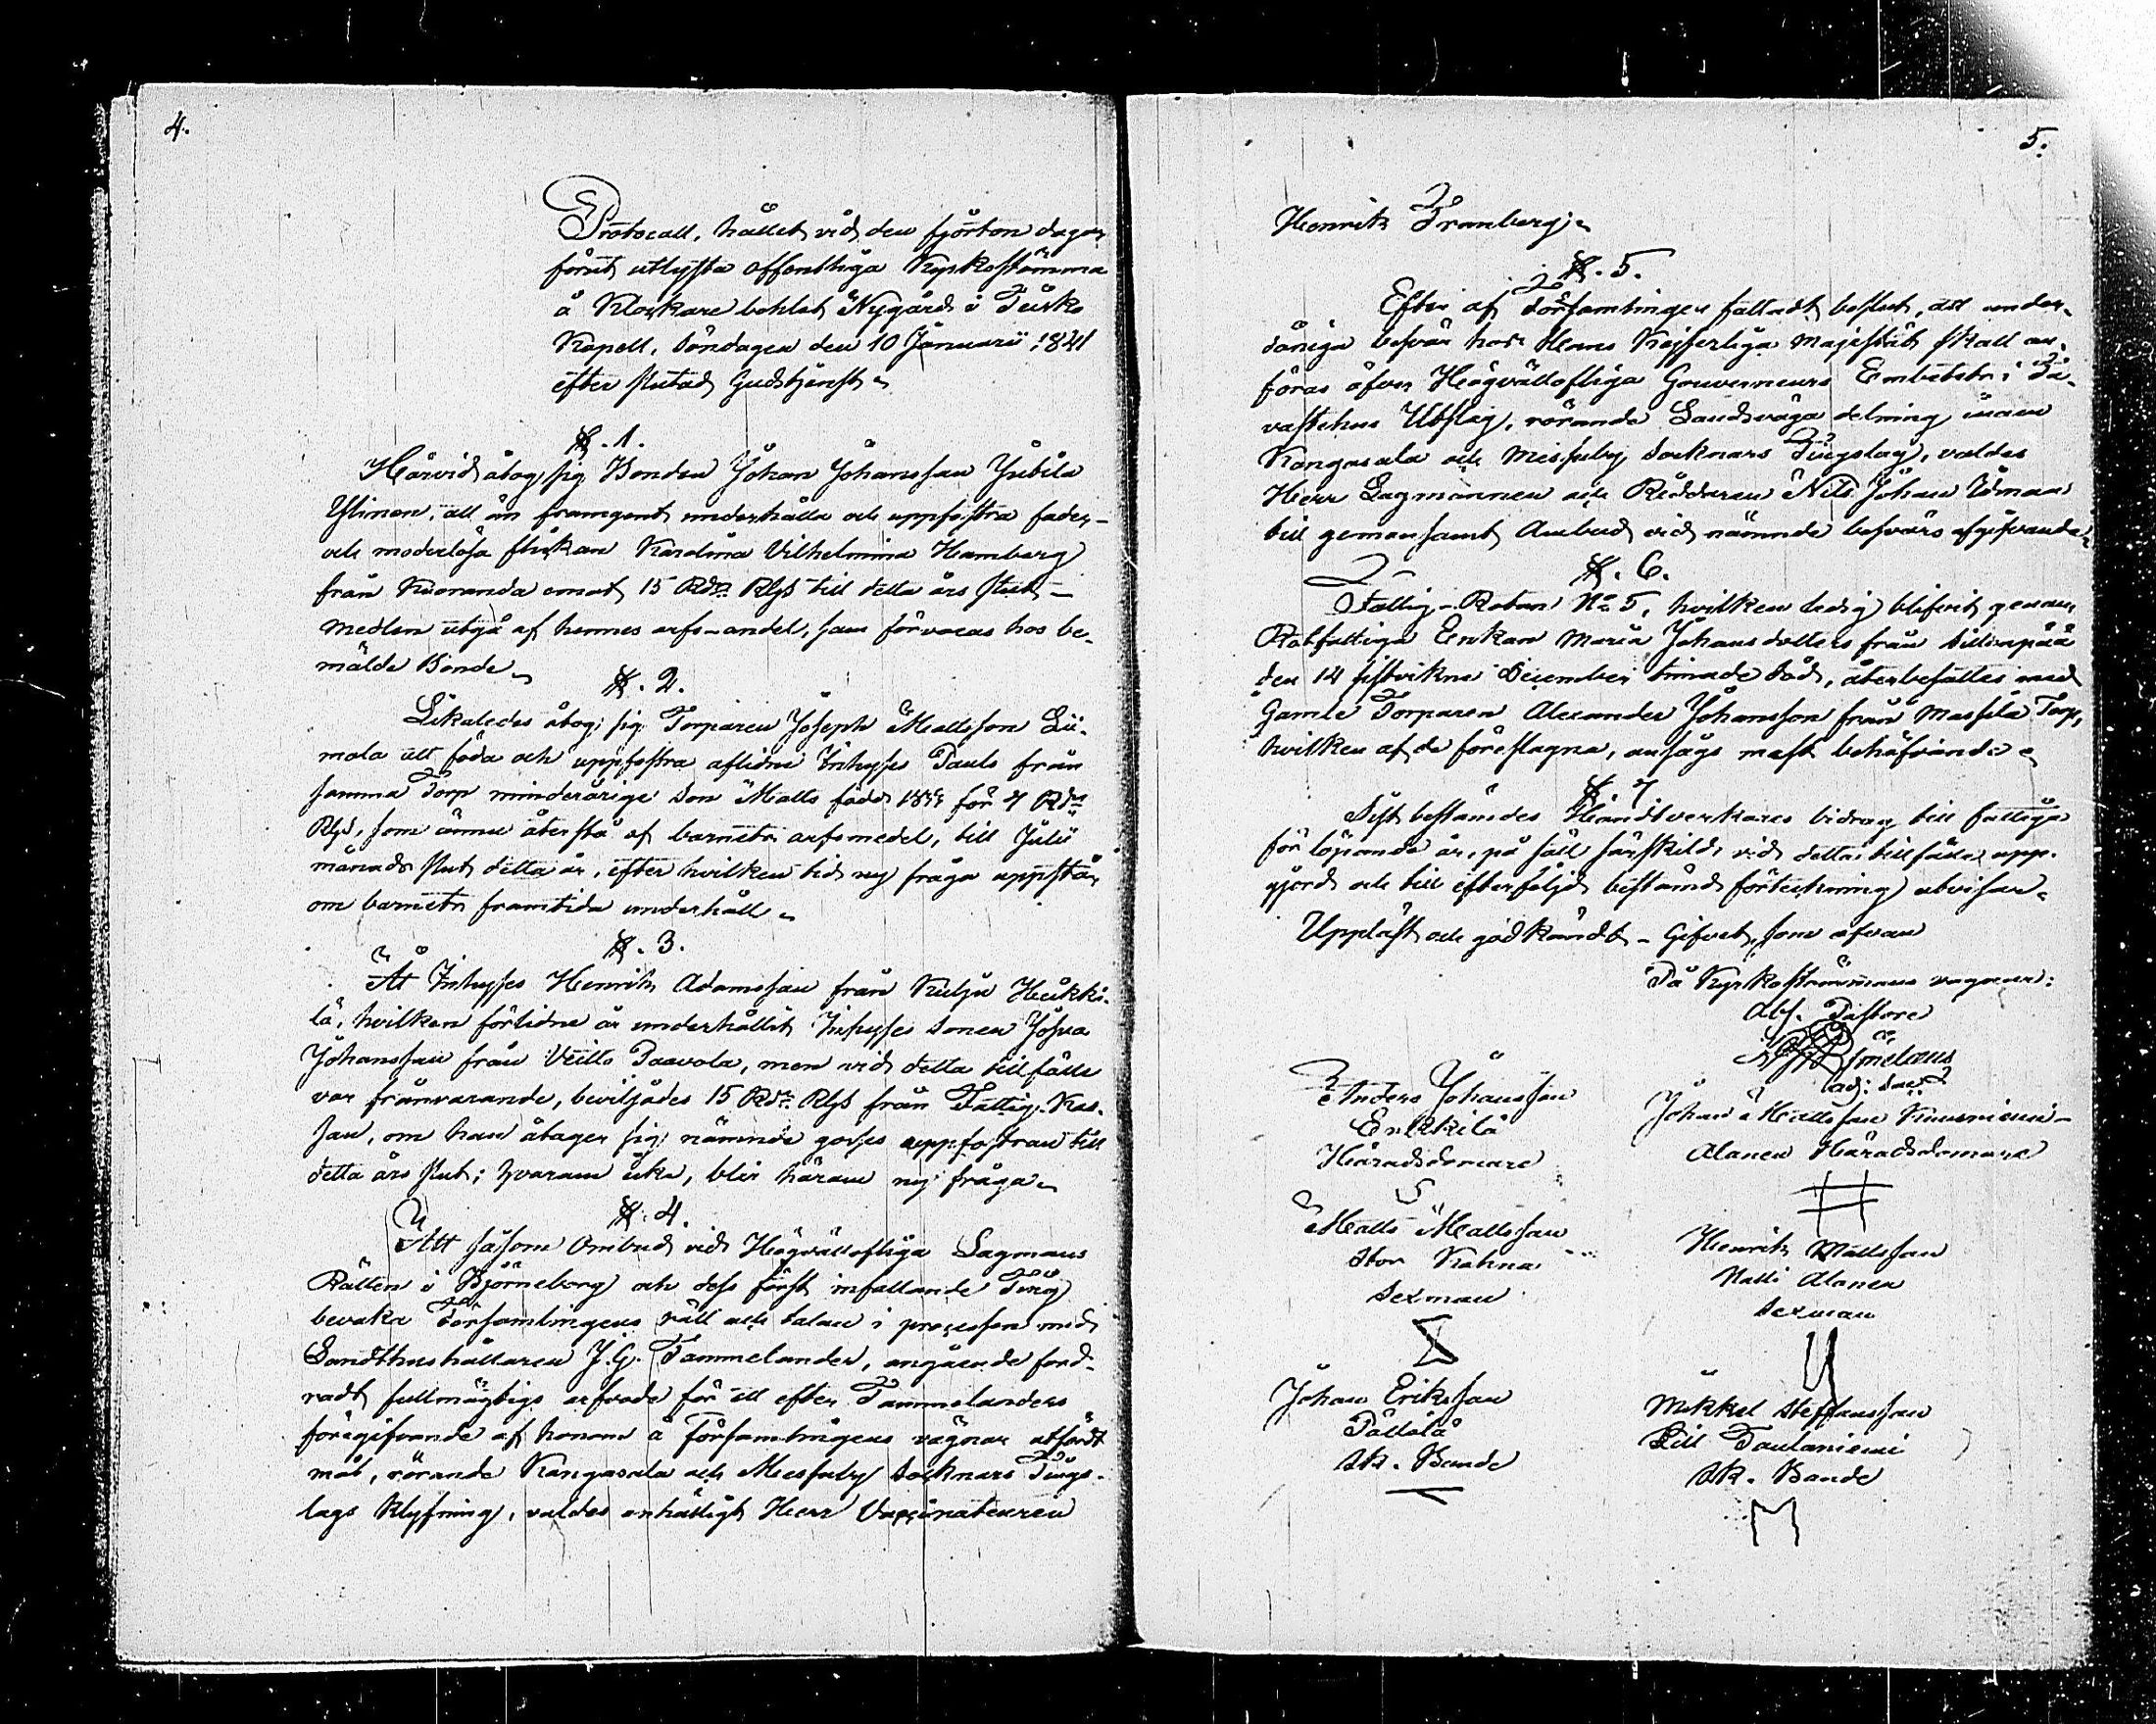 4.
Protocoll, hållet vid den fjorton dagar
förut utlysta offentliga Kyrkostämma
å Klockare bohlet Nygård i
Kapell, Söndagen den 10 Januarii 1841
efter slutad Gudstjenst.
§. 1.
Härvid åtog sig Bonden Johan Johansson
Ylinen, att än framgent underhålla och uppfostra fader-
och moderlösa flickan Karolina Vilhelmina Hamberg
från Kuoranda emot 15 Rdr Rgs till detta års slut
medlen utgå af hennes arfs-andel, som förvaras hos be-
mälde Bonde.
§. 2.
Likaledes åtog sig Torparen Joseph Mattsson Lii-
mola att föda och uppfostra aflidne Inhyses Pauls från
samma Torp minderårige Son Matts född för 7 Rdr
Rgs, som ännu återstå af barnets arfsmedel, till Julii
månads slut detta år, efter hvilken tid ny fråga uppstår
om barnets framtida underhåll.
§. 3.
Åt Inhyses Henrik Adamsson från Kulju Heikki-
lä, hvilken förlidne år underhållit Inhyses Sonen Josua
Johansson från Paavola, men vid detta tillfälle
var frånvarande, beviljades 15 Rdr Rgs från Fattig-Kas-
san, om han åtager sig nämnde gosses uppfostran till
detta års slut; hvarom icke, blir härom ny fråga.
§. 4.
Att såsom Ombud vid Högvällofliga Lagmans
Rätten i Björneborg och dess först infallande Ting
bevaka Församlingens rätt och talan i processen med
Landthushållaren J. G. Tammelander, angående ford-
radt fullmägtigs arfvode för ett efter Tammelanders
föregifvande af honom å Församlingens vägnar utfördt
mål, rörande Kangasala och Messuby Socknars Tings-
lags klyfning, valdes enhälligt Herr Vaccinateuren
5.
Henrik Franberg.
§. 5.
Efter af Församlingen fattadt beslut, att under-
dåniga besvär hos Hans Kejserliga Majestät skall an-
föras öfver Högvällofliga Gouverneurs Embetets i Ta-
vastehus Utslag, rörande Landsväga delning inom
Kangasala och Messuby Socknars Tingslag, valdes
Herr Lagmannen och Riddaren Nils Johan Idman
till gemensamt Ombud vid nämnde besvärs afgifvande.
§. 6.
Fattig-Roten No 5, hvilken ledig blifvit genom
Rotfattiga Enkan Maria Johansdotters från
den 14 sistvikne December timade död, återbesattes med
Gamle Torparen Alexander Johansson från Massila Torp,
hvilken af de föreslagna, ansågs mest behöfvande.
§. 7
Sist bestämdes Handtverkares bidrag till fattiga
för löpande år, på sätt särskild vid detta tillfälle upp-
gjord och till efterföljd bestämd förteckning utvisar.
Uppläst och godkändt - Gifvet, som ofvan
På Kyrkostämmans vägnar:
Abs. Pastore
adj: Sacr
Anders Johansson
Erkkilä
Häradsdomare
Johan Mattsson
Alanen Häradsdomare
Matts Mattsson
Stor Kahna
Sexman
Henrik Mattsson
Matti Alanen
Sexman
Johan Eriksson
Pättilä
Sk. Bonde
Mikkel Steffansson
Lill Taulaniemi
Sk. Bonde